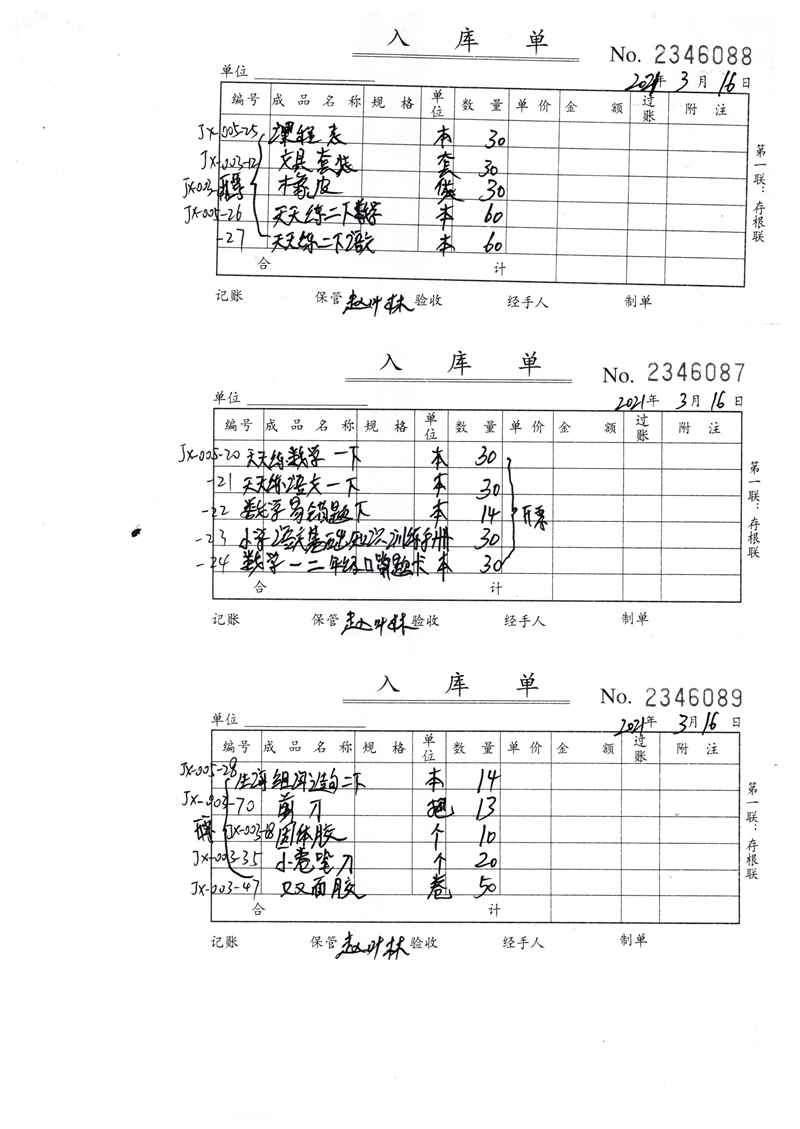 入 库 单 No. 2346088
单位 2021年 3月 16日
编号 成品名称 规格 单位 数量 单价 金额 过账 附注
JX-005-25 课程表 本 30
JX-003-12 文具套装 套 30
JX-003- 开票 橡皮 袋 30
JX-005-26 天天练二下数学 本 60
-27 天天练二下语文 本 60
合 计
第一联：存根联
记账 保管 赵叶林 验收 经手人 制单
入 库 单 No. 2346087
单位 2021年 3月 16日
编号 成品名称 规格 单位 数量 单价 金额 过账 附注
JX-005-20 天天练数学一下 本 30
-21 天天练语文一下 本 30
-22 数学易错题下 本 14 开票
-23 小学语文基础知识训练手册 30
-24 数学一二年级口算题卡 本 30
合 计
第一联：存根联
记账 保管 赵叶林 验收 经手人 制单
入 库 单 No. 2346089
单位 2021年 3月 16日
编号 成品名称 规格 单位 数量 单价 金额 过账 附注
JX-005-28 生词组词造句二下 本 14
JX-003-70 剪刀 把 13
开票 JX-003-18 固体胶 个 10
JX-003-35 小卷笔刀 个 20
JX-003-47 双面胶 卷 50
合 计
第一联：存根联
记账 保管 赵叶林 验收 经手人 制单